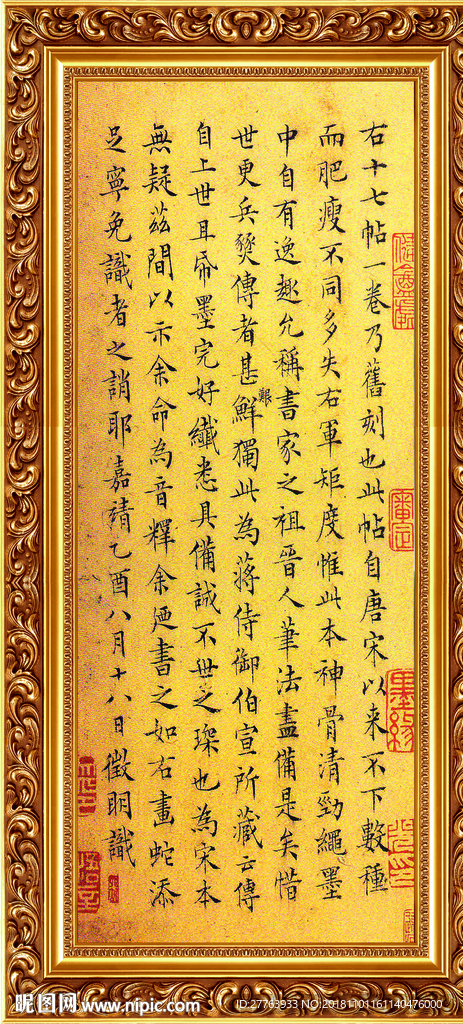 右十七帖一卷乃舊刻也此帖自唐宋以来不下數種
而肥瘦不同多失右軍矩度惟此本神骨清勁繩墨
中自有逸趣允稱書家之祖晉人筆法盡備是矣惜
世更兵燹傳者甚鮮獨此為蔣侍御伯宣所藏云傳
艱
自上世且帋墨完好纖悉具備誠不世之琛也為宋本
無疑茲間以示余命為音釋余廼書之如右畫蛇添
足寧免識者之誚耶嘉靖乙酉八月十八日徵明識
昵图网 www.nipic.com
ID:27763933 NO:20181101161140476000